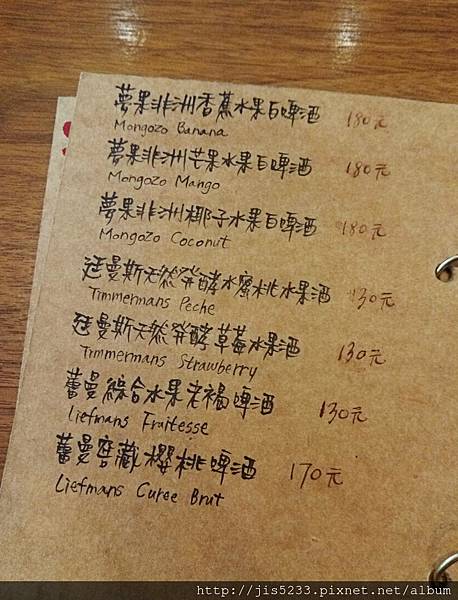 夢果非洲香蕉水果白啤酒 180元
Mongozo Banana
夢果非洲芒果水果白啤酒 180元
Mongozo Mango
夢果非洲椰子水果白啤酒 180元
Mongozo Coconut
廷曼斯天然發酵水蜜桃水果酒 130元
Timmermans Peche
廷曼斯天然發酵草莓水果酒 130元
Timmermans Strawberry
蕾曼綜合水果老褐啤酒 130元
Liefmans Fruitesse
蕾曼窖藏櫻桃啤酒 170元
Liefmans Curee Brut
http://jis5233.pixnet.net/album